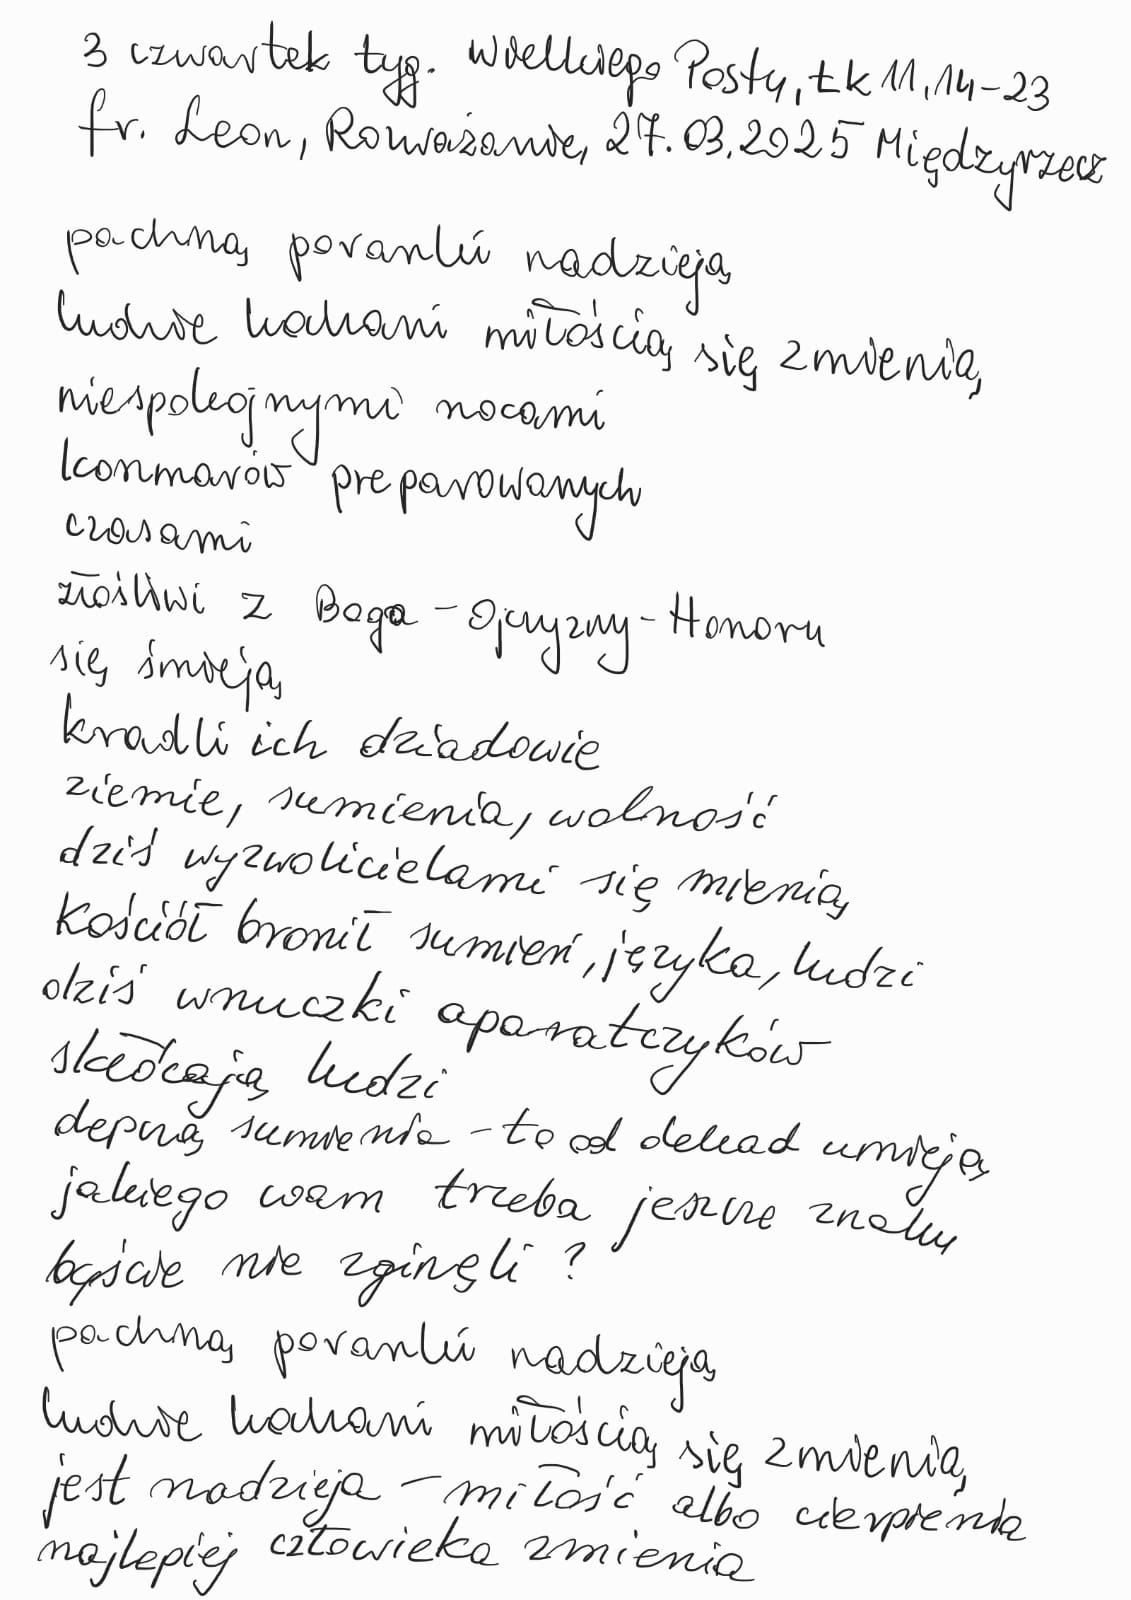 3 czwartek tyg. Wielkiego Postu, Łk 11,14-23
fr. Leon, Rozważanie, 27.03.2025 Międzyrzecz
pachną poranki nadzieją
ludzie kochani miłością się zmienią
niespokojnymi nocami
koszmarów preparowanych
czasami
złośliwi z Boga - Ojczyzny - Honoru
się śmieją
kradli ich dziadowie
ziemie, sumienia, wolność
dziś wyzwolicielami się mienią
kościół bronił sumień, języka, ludzi
dziś wnuczki aparatczyków
skłócają ludzi
depczą sumienia - to od dekad umieją
jakiego wam trzeba jeszcze znaku
byście nie zginęli?
pachną poranki nadzieją
ludzie kochani miłością się zmienią
jest nadzieja - miłość albo cierpienia
najlepiej człowieka zmienia